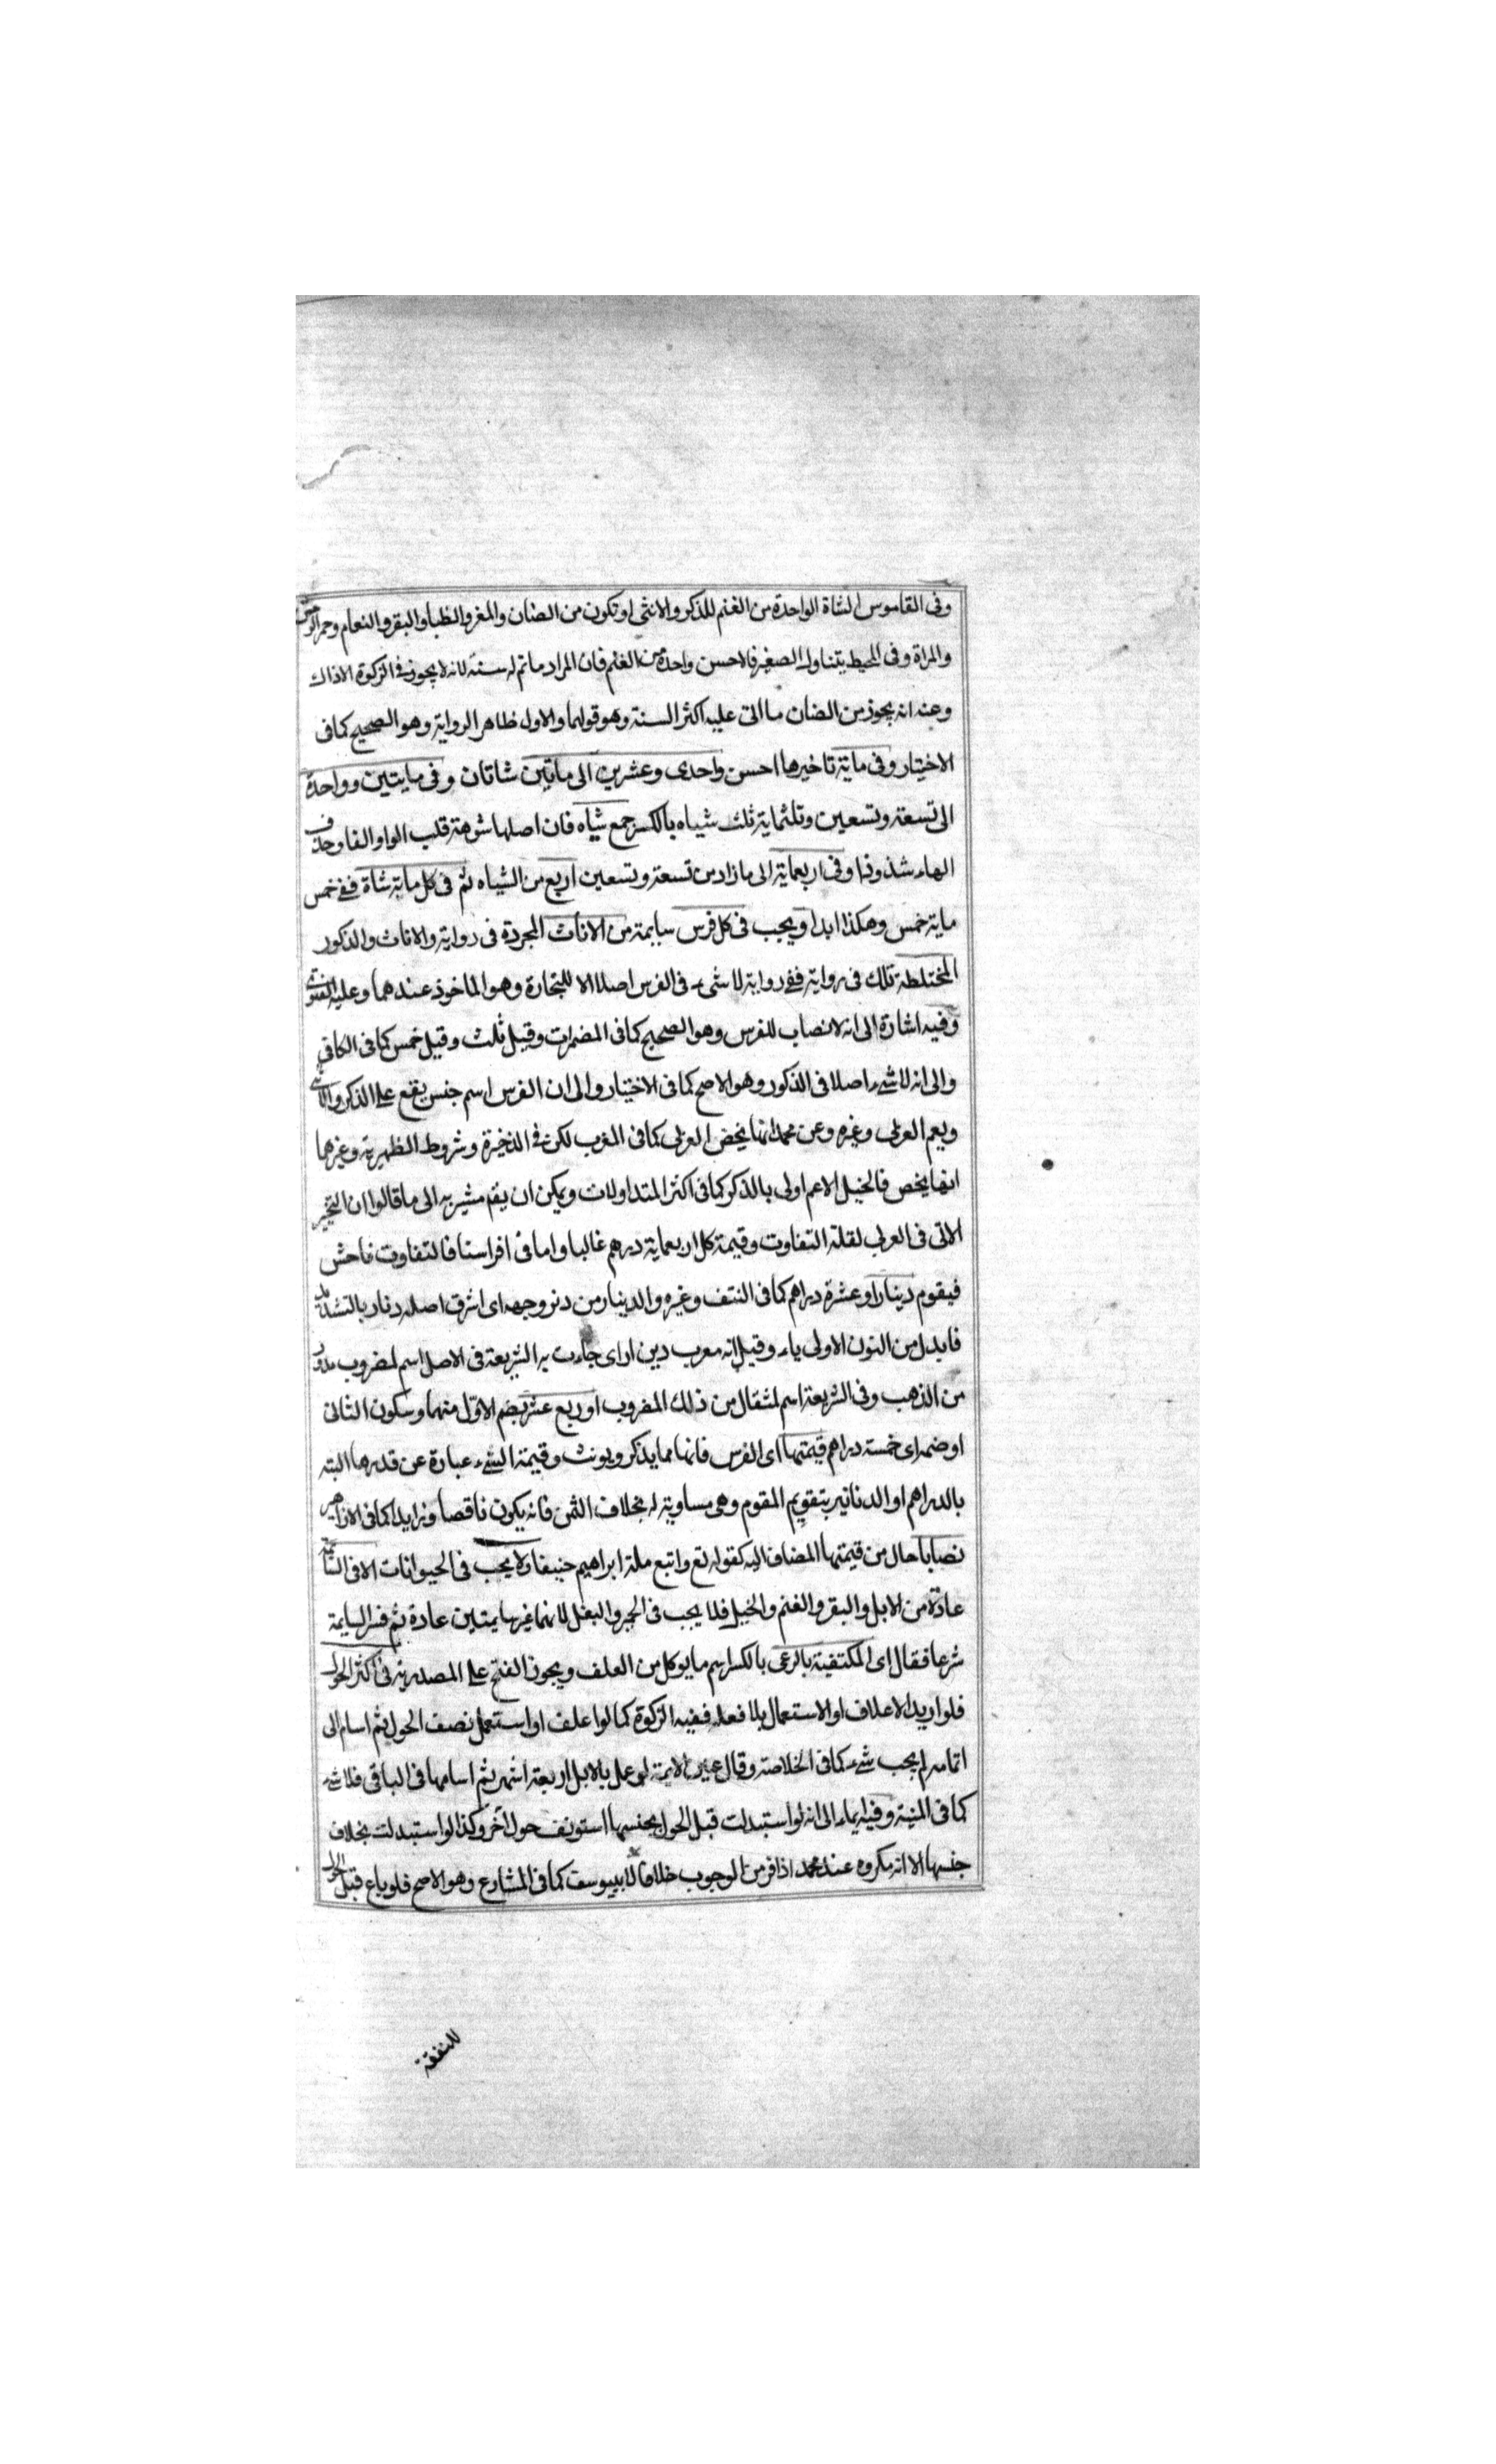 وفى القاموس الشاة الواحدة من الغنم للذكر والانثى او تكون من الضان والمغر والظبا والبقر والنعام وحمر الوحش
والمراة وفى المحيط يتناول الصغير فالاحسن واحدة من الغنم فان المراد ما تم له سنة لانه لا يجوز فى الزكوة الا ذاك
وعنه انه يجوز من الضان ما اتى عليه اكثر السنة وهو قولهما والاول ظاهر الرواية وهو الصحيح كما فى
الاختيار وفى ماية تاخيرها احسن واحدى وعشرين الى مايتين شاتان وفى مايتين وواحدة
الى تسعة وتسعين وثلثماية ثلث شياه بالكسر جمع شياه فان اصلها شوهة قلب الواو الفا وحذف
الهاء شذوذا وفى اربعماية الى ما زاد من تسعة وتسعين اربع من الشياه ثم فى كل ماية شاة ففى خمس
ماية خمس وهكذا ابدا ويجب فى كل فرس سايمة من الاناث المجردة فى رواية والاناث والذكور
المختلطة تلك فى رواية ففى رواية لا شىء فى الفرس اصلا الا للتجارة وهو الماخوذ عندهما وعليه الفتوى
وفيه اشارة الى انه لا نصاب للفرس وهو الصحيح كما فى المضمرات وقيل ثلث وقيل خمس كما فى الكافى
والى انه لا شىء اصلا فى الذكور وهو الاصح كما فى الاختيار والى ان الفرس اسم جنس يقع على الذكر والانثى
ويعم العربى وغيره وعن محمد انها يخص العربى كما فى المغرب لكن فى الذخيرة وشروط الظهيرية وغيرها
انها يخص فالخيل الاعم اولى بالذكر كما فى اكثر المتداولات ويمكن ان يقم مشير به الى ما قالوا ان التخيير
الاتى فى العربى لقلة التفاوت وقيمة كل اربعماية درهم غالبا واما فى افراسنا فالتفاوت فاحش
فيقوم دينارا وعشرة دراهم كما فى النتف وغيره والدينار من دنر وجهه اى اشرق اصله دنار بالتشديد
فابدل من النون الاولى ياء وقيل انه معرب دين ار اى جاءت به الشريعة فى الاصل اسم لمضروب مدور
من الذهب وفى الشريعة اسم لمثقال من ذلك المضروب او ربع عشر بضم الاول منهما وسكون الثانى
او ضمه اى خمسة دراهم قيمتها اى الفرس فانها مما يذكر ويونث وقيمة الشىء عبارة عن قدرها البته
بالدراهم او الدنانير بتقويم المقوم وهى مساوية له بخلاف الثمن فانه يكون ناقصا وزايدا كما فى الازاهير
نصابا حال من قيمتها المضاف اليه كقوله تع واتبع ملة ابراهيم حنيفا ولا يجب فى الحيوانات الا فى السائمة
عادة من الابل والبقر والغنم والخيل فلا يجب فى الحمير والبغل لانهما غير سايمتين عادة ثم فسر السايمة
شرعا فقال اى المكتفية بالرعى بالكسر اسم ما يوكل من العلف ويجوز الفتح على المصدرية فى اكثر الحول
فلو اريد الاعلاف او الاستعمال بلا فعله ففيه الزكوة كما لو اعلف او استعمل نصف الحول ثم اسام الى
اتمامه لم يجب شىء كما فى الخلاصة وقال عين الايمة لو عمل بالابل اربعة اشهر ثم اسامها فى الباقى فلا شىء
كما فى المنية وفيه ايماء الى انه لو استبدلت قبل الحول بجنسها استونف حول آخر وكذا لو استبدلت بخلاف
جنسها الا انه مكروه عند محمد اذا فر من الوجوب خلافا لابييوسف كما فى المشارع وهو الاصح فلو باع قبل الحول
للنفقة